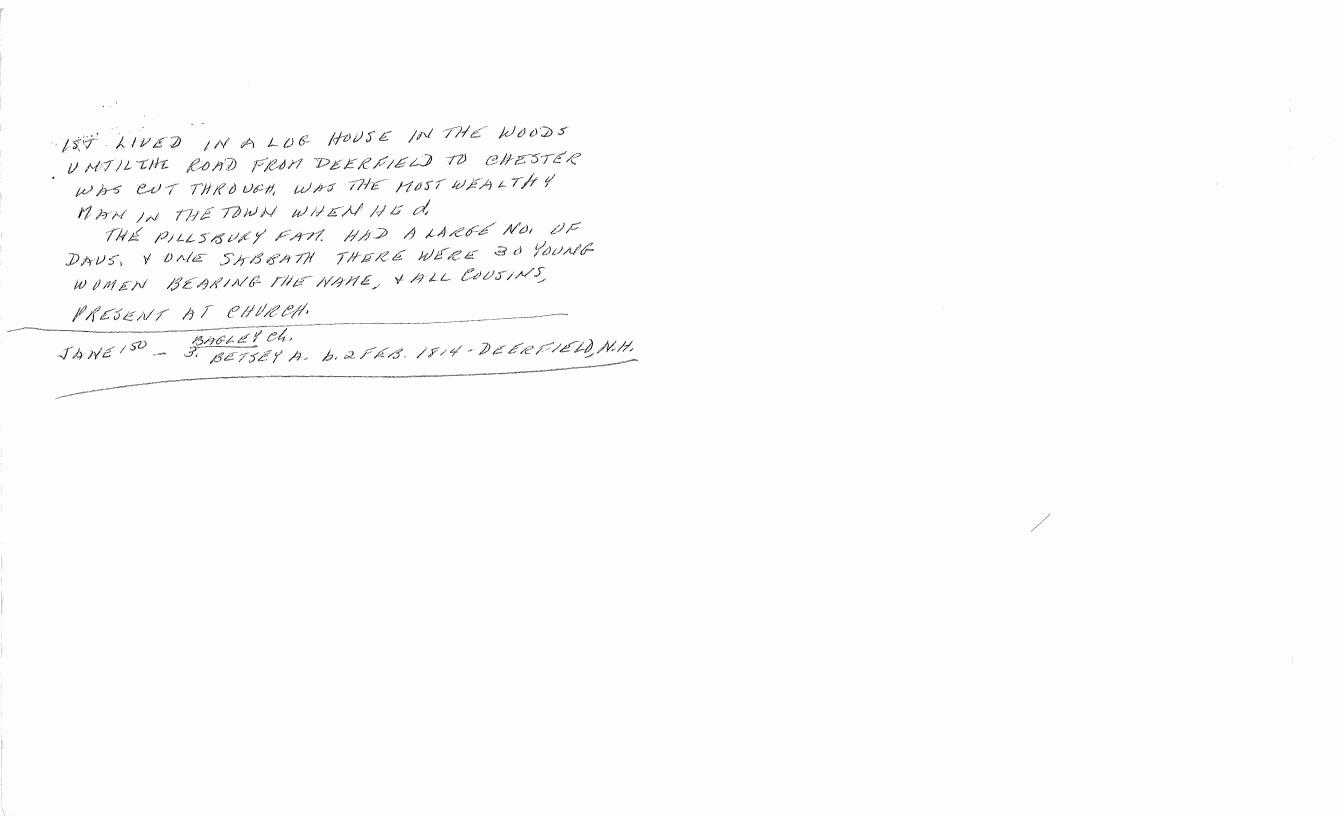 1ST LIVED IN A LOG HOUSE IN THE WOODS
UNTIL THE ROAD FROM DEERFIELD TO CHESTER
WAS CUT THROUGH. WAS THE MOST WEALTHY
MAN IN THE TOWN WHEN HE d.
THE PILLSBURY FAM. HAD A LARGE NO. OF
DAUS. & ONE SABBATH THERE WERE 30 YOUNG
WOMEN BEARING THE NAME, & ALL COUSINS,
PRESENT AT CHURCH.
BAGLEY Ch.
JANE 150 - 3. BETSEY A. b. 2 FEB. 1814 - DEERFIELD, N.H.